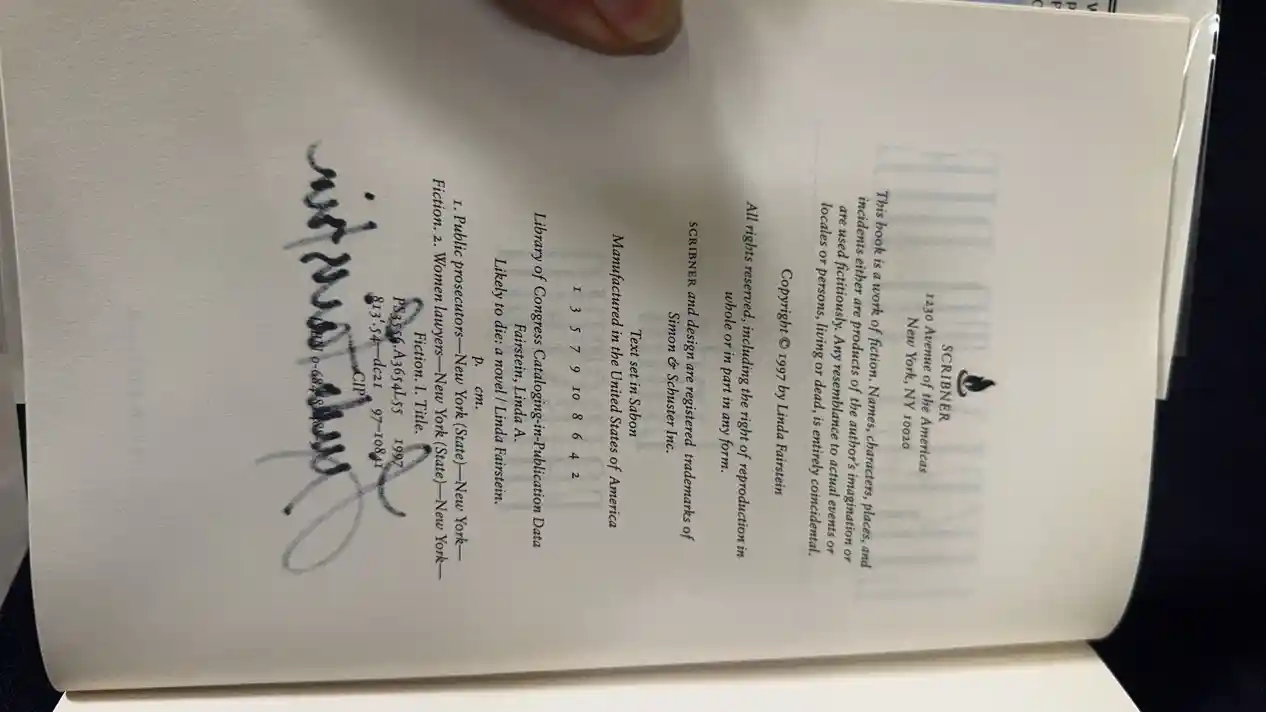 SCRIBNER
1230 Avenue of the Americas
New York, NY 10020
This book is a work of fiction. Names, characters, places, and
incidents either are products of the author's imagination or
are used fictitiously. Any resemblance to actual events or
locales or persons, living or dead, is entirely coincidental.
Copyright © 1997 by Linda Fairstein
All rights reserved, including the right of reproduction in
whole or in part in any form.
SCRIBNER and design are registered trademarks of
Simon & Schuster Inc.
Text set in Sabon
Manufactured in the United States of America
1 3 5 7 9 10 8 6 4 2
Library of Congress Cataloging-in-Publication Data
Fairstein, Linda A.
Likely to die: a novel / Linda Fairstein.
p. cm.
1. Public prosecutors—New York (State)—New York—
Fiction. 2. Women lawyers—New York (State)—New York—
Fiction. I. Title.
PS3556.A3654L55 1997
813'.54—dc21 97-10841
CIP